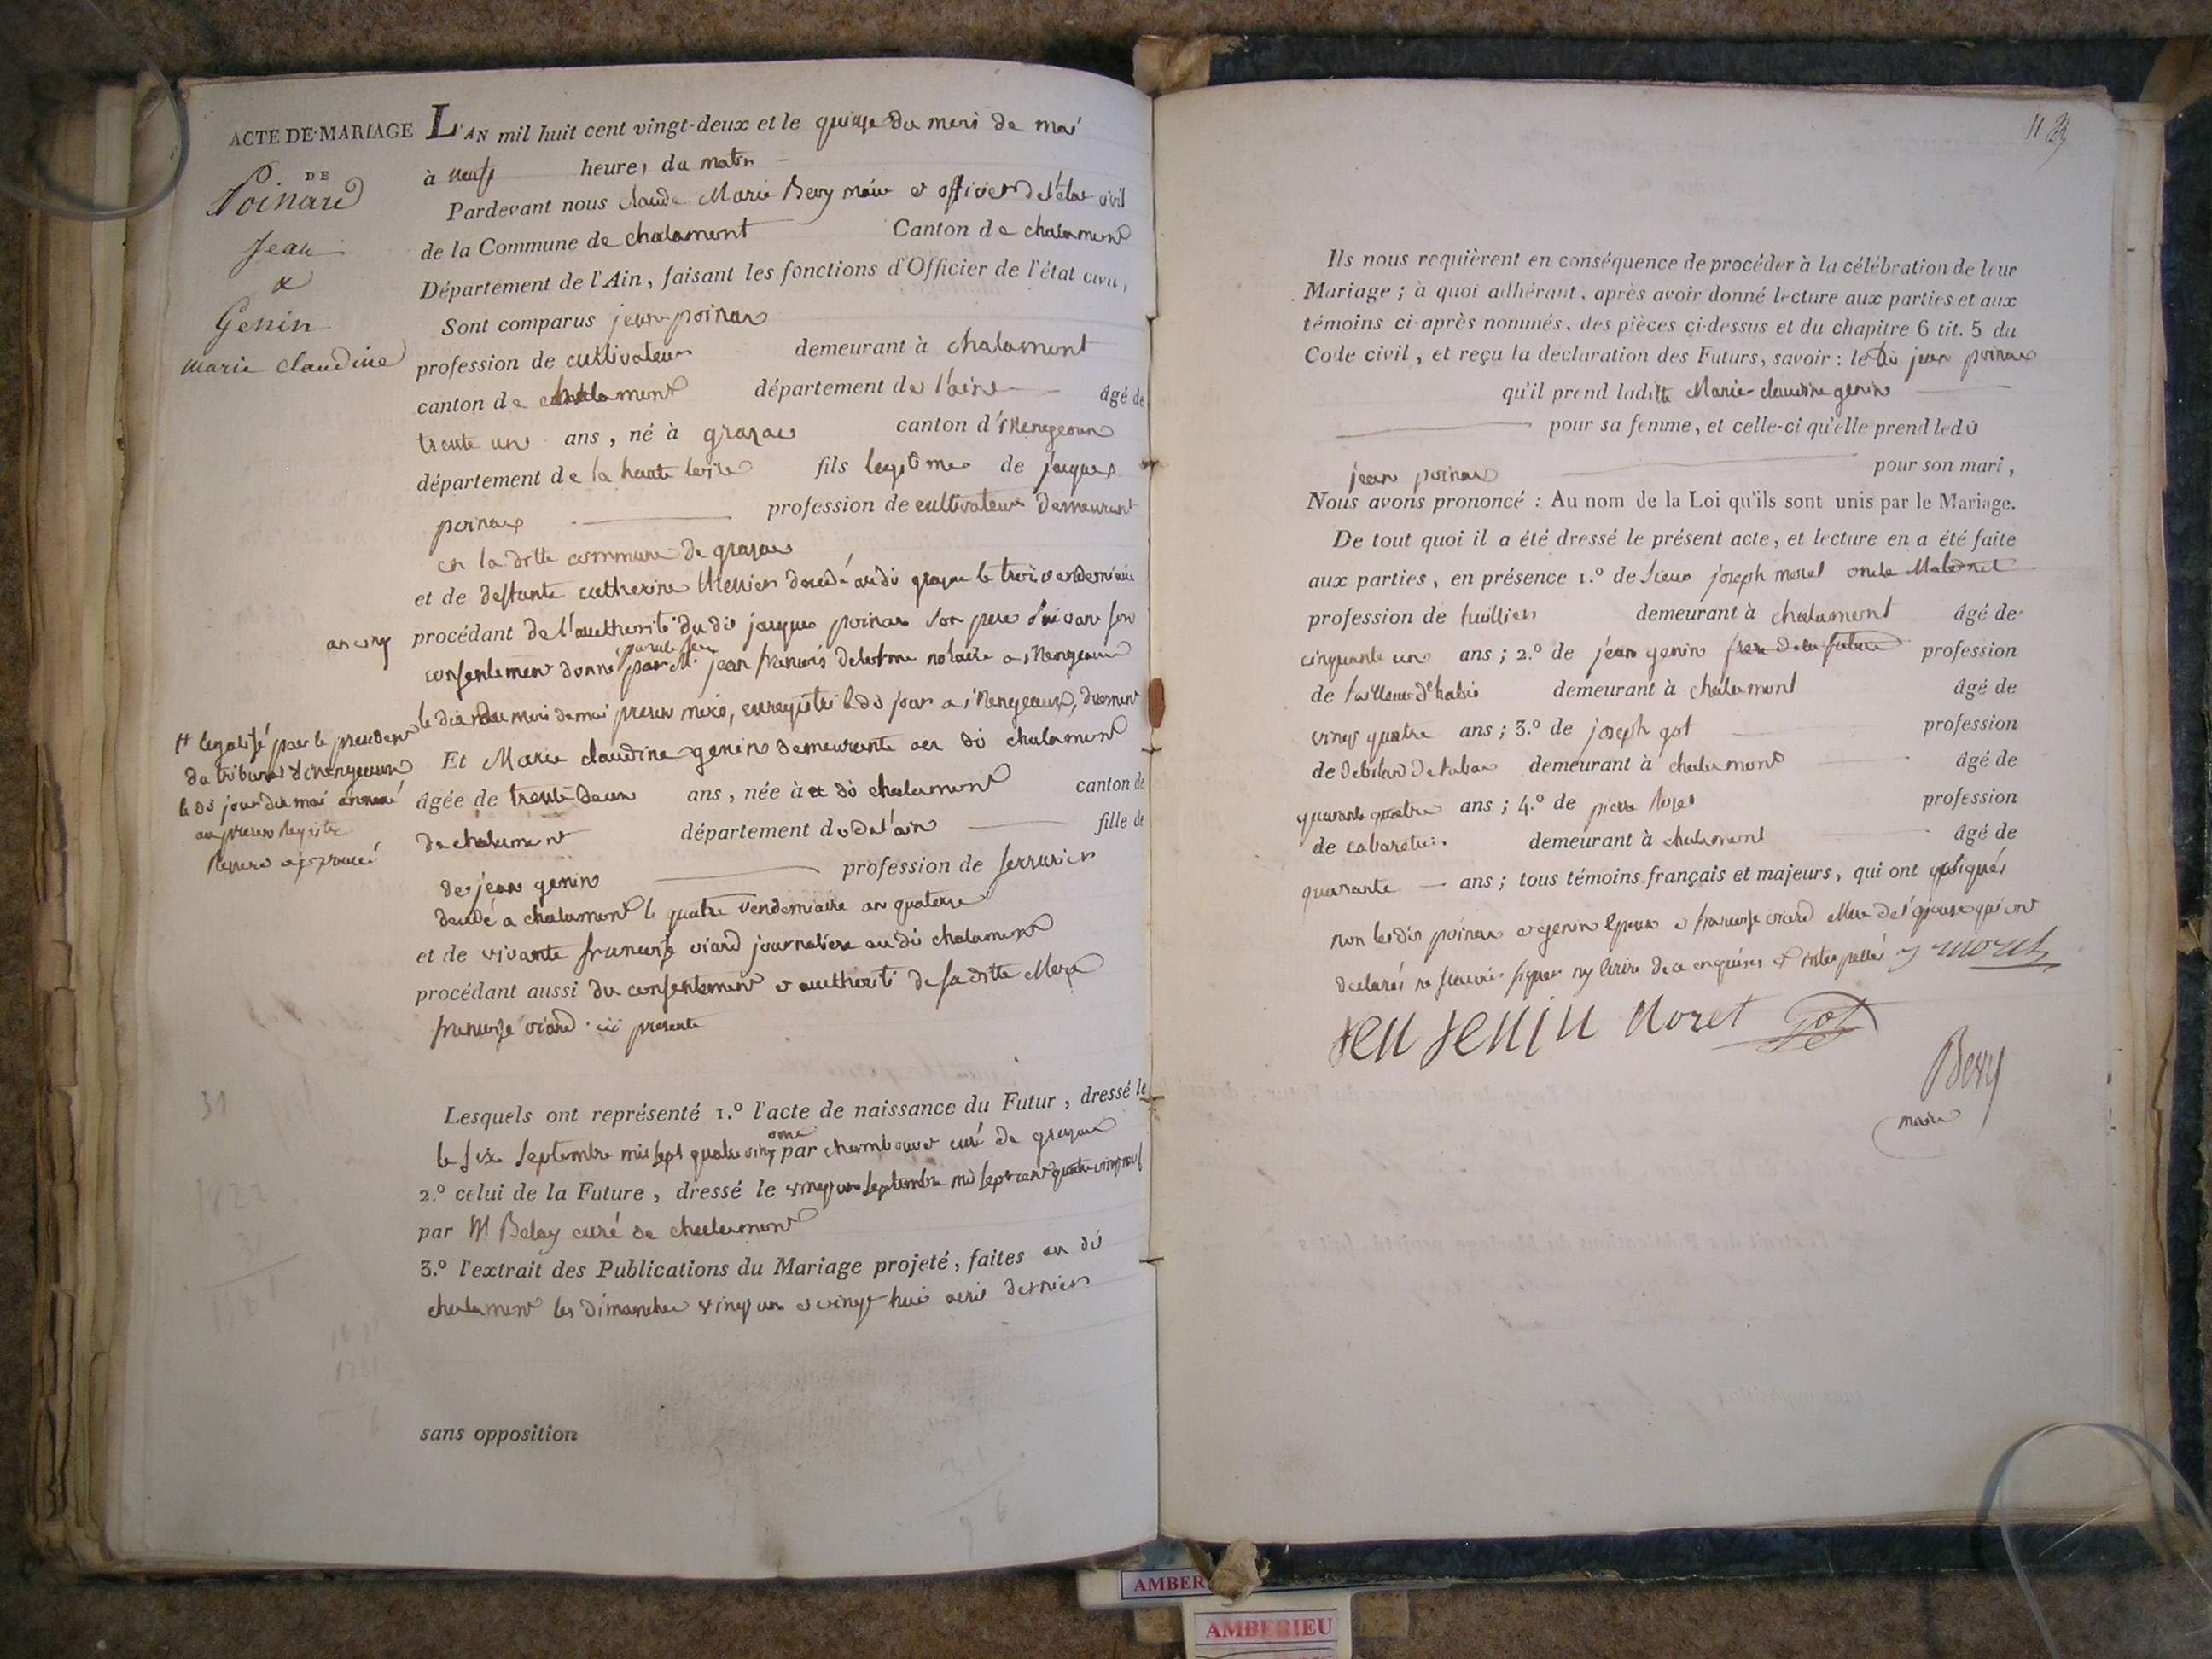 ACTE DE MARIAGE
DE
Poinard
Jean
&
Genin
marie claudine
L'AN mil huit cent vingt-deux et le quinze du mois de mai
à neuf heures du matin
Pardevant nous claude Marie Bevy maire et officier de l'état civil
de la Commune de chalamont Canton de chalamont
Département de l'Ain, faisant les fonctions d'Officier de l'état civil,
Sont comparus jean poinar
profession de cultivateur demeurant à chalamont
canton de chalamont département de l'ain âgé de
trente un ans, né à grazac canton d'
département de la haute loire fils legitime de jacques
poinar profession de cultivateur demeurant
en la ditte commune de grazac
et de deffunte catherine decedé audit grazac le trois vendemiaire
an cinq
procédant de l'authorité du dit jacques poinar son pere suivant son
consentement donné par jean francois notaire a
le dix du mois de mai present mois, enregistré le dit jour a
# legalisé par le president
du tribunal
le dit jour dix mai annexé
au present registre
Renvoi approuvé
Et Marie claudine genin demeurante au dit chalamont
âgée de trente deux ans, née à dit chalamont canton de
de chalamont département de l'ain fille de
de jean genin profession de serrurier
decedé a chalamont le quatre vendemiaire an quatorze
et de vivante francoise viard journaliere au dit chalamont
procédant aussi du consentement et authorité de sa ditte Mere
francoise viard ici presente
Lesquels ont représenté 1.º l'acte de naissance du Futur, dressé le
le six septembre mil sept quatre vingt onze par curé de grazac
2.º celui de la Future, dressé le vingt un septembre mil sept cent quatre vingt neuf
par M Belay curé de chalamont
3.º l'extrait des Publications du Mariage projeté, faites au dit
chalamont les dimanches vingt un et vingt huit avril dernier
sans opposition
Ils nous requièrent en conséquence de procéder à la célébration de leur
Mariage; à quoi adhérant, après avoir donné lecture aux parties et aux
témoins ci-après nommés, des pièces ci-dessus et du chapitre 6 tit. 5 du
Code civil, et reçu la déclaration des Futurs, savoir : le dit jean poinar
qu'il prend laditte Marie claudine genin
pour sa femme, et celle-ci qu'elle prend ledit
jean poinar pour son mari,
Nous avons prononcé : Au nom de la Loi qu'ils sont unis par le Mariage.
De tout quoi il a été dressé le présent acte, et lecture en a été faite
aux parties, en présence 1.º de Sieur joseph moret oncle Maternel
profession de huillier demeurant à chalamont âgé de
cinquante un ans; 2.º de jean genin frere de la future profession
de tailleur d'habis demeurant à chalamont âgé de
vingt quatre ans; 3.º de joseph got profession
de debitant de tabac demeurant à chalamont âgé de
quarante quatre ans; 4.º de pierre profession
de cabaretier demeurant à chalamont âgé de
quarante ans; tous témoins français et majeurs, qui ont
non lesdits poinar et genin Epoux et francoise viard Mere de l'epouse qui ont
declarés ne scavoir signer ny ecrire de ce enquises et interpellés
moret
Jen jenin Moret Got
Bevy
maire
AMBERIEU